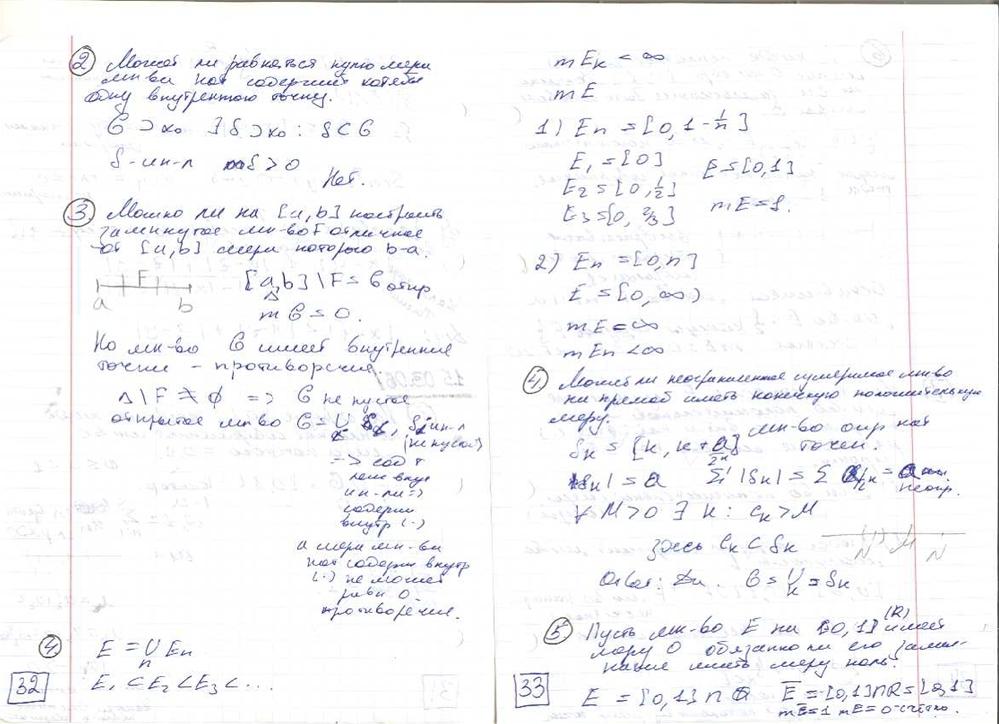 ② Может ли равняться нулю мера
мн-ва кот содержит хотя бы
одну внутреннюю точку.
G ⊃ x₀ ∃ δ ⊃ x₀ : δ ⊂ G
δ-ин-л mδ > 0
Нет.
③ Можно ли на [a,b] построить
замкнутое мн-во F отличное
от [a,b] мера которого b-a.
F
a b
[a,b] \ F = G откр
Δ
m G = 0.
Но мн-во G имеет внутренние
точки - противоречие
Δ \ F ≠ ∅ => G не пустое
открытое мн-во G = ∪ δk, δk ин-л
(не пустой)
=> сод
ин-лы =>
содержит
внутр (·)
а мера мн-ва
кот содержи внутр
(·) не может
равн 0 -
противоречие.
④ E = ∪ En
n
E₁ ⊂ E₂ ⊂ E₃ ⊂ ...
32
mEk < ∞
mE
1) En = [0, 1 - 1/n]
E₁ = [0]
E₂ = [0, 1/2]
E₃ = [0, 2/3]
E = [0,1]
mE = 1.
2) En = [0,n]
E = [0, ∞)
mE = ∞
mEn < ∞
④ Может ли неограниченное мн-во
на прямой иметь конечную положительную
меру.
мн-во
точек.
δk = [k, k + a/2ᵏ]
|δk| = a Σ |δk| = Σ a/2ᵏ = a
неогр.
∀ M > 0 ∃ k : ck > M
здесь ck ⊂ δk
N M N
Ответ: Да. G = ∪ δk
k
⑤ Пусть мн-во E на [0,1] (R) имеет
меру 0 обязано ли его замы-
кание иметь меру ноль.
E = [0,1] ∩ Q Ē = [0,1] ∩ R = [0,1]
mĒ = 1 mE = 0 - счётно.
33